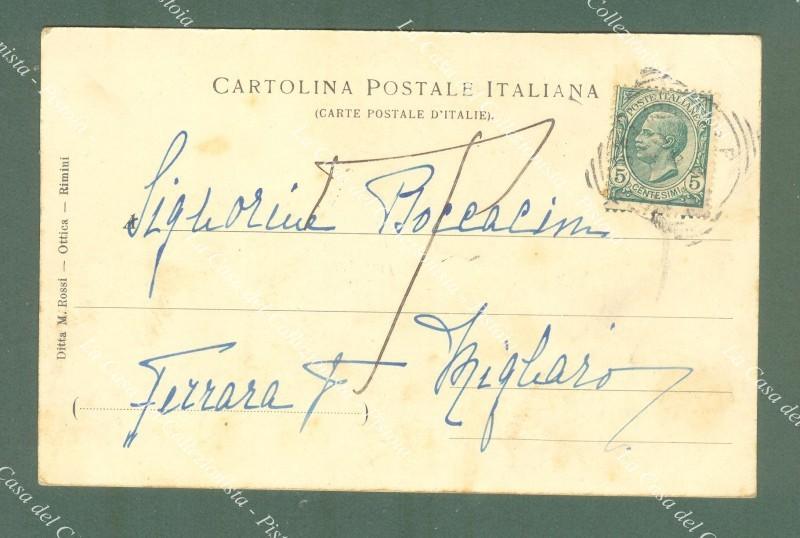 CARTOLINA POSTALE ITALIANA
(CARTE POSTALE D'ITALIE).
POSTE ITALIANE
5 5
CENTESIMI
Signorine Boccacini
Ferrara Migliaro
Ditta M. Rossi — Ottica — Rimini
La Casa del Collezionista - Pistoia